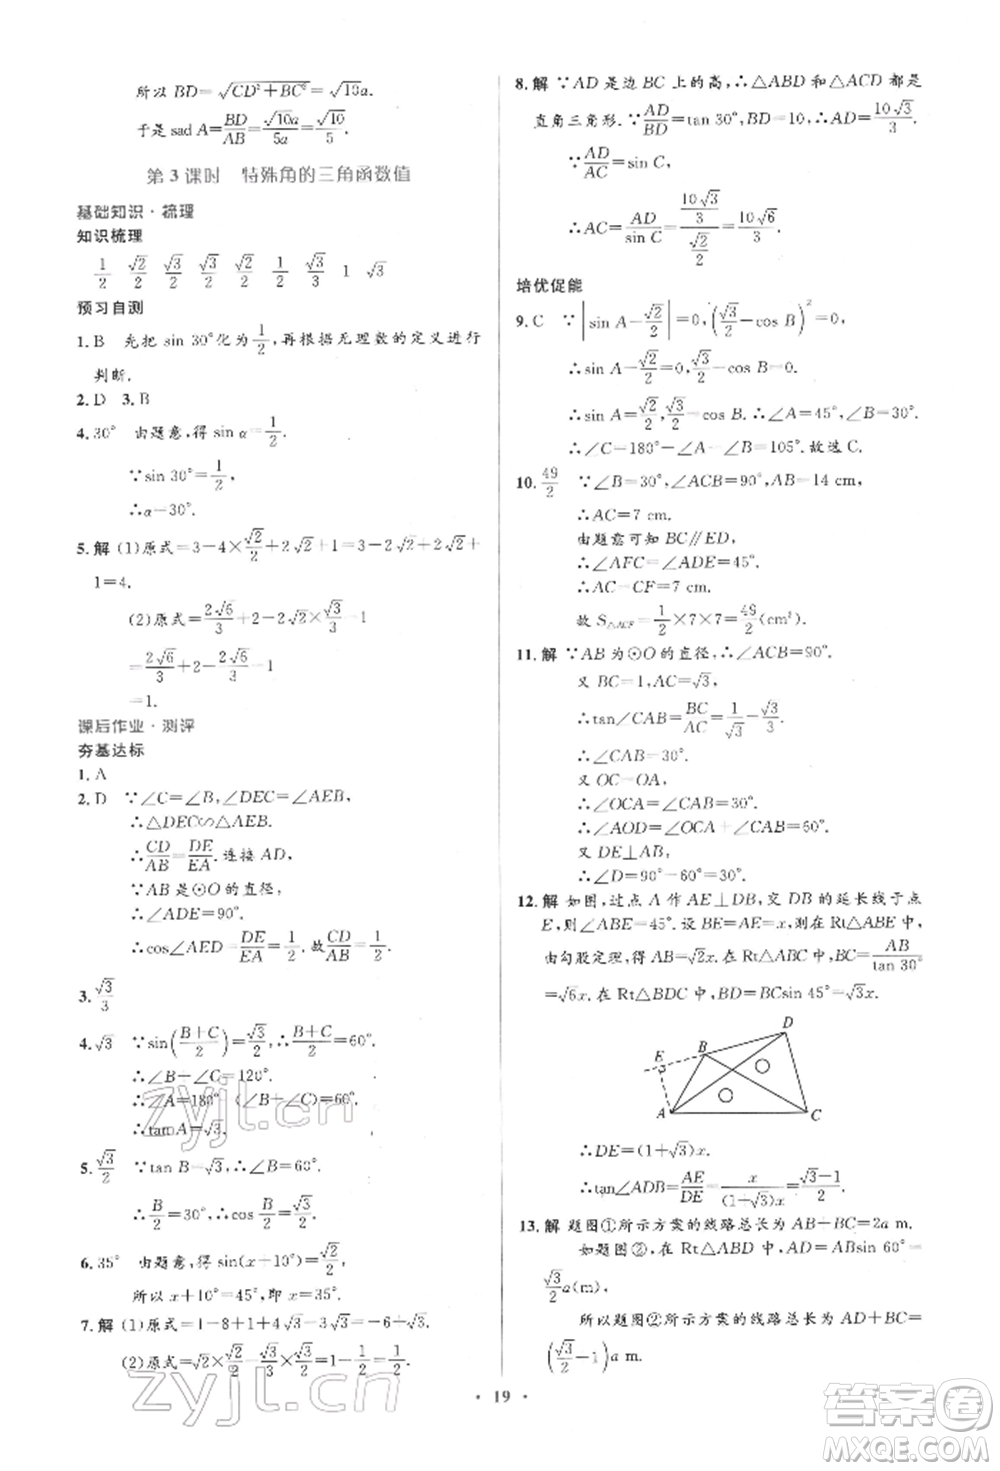 所以 BD=√(CD²+BC²)=√10a.
于是 sad A=BD/AB=√10a/5a=√10/5.
第 3 课时 特殊角的三角函数值
基础知识·梳理
知识梳理
1/2 √2/2 √3/2 √3/2 √2/2 1/2 √3/3 1 √3
预习自测
1. B 先把 sin 30°化为1/2,再根据无理数的定义进行
判断.
2. D 3. B
4. 30° 由题意,得 sin α=1/2.
∵sin 30°=1/2,
∴α=30°.
5. 解 (1)原式=3-4×√2/2+2√2+1=3-2√2+2√2+
1=4.
(2)原式=2√6/3+2-2√2×√3/3-1
=2√6/3+2-2√6/3-1
=1.
课后作业·测评
夯基达标
1. A
2. D ∵∠C=∠B,∠DEC=∠AEB,
∴△DEC∽△AEB.
∴CD/AB=DE/EA.连接 AD,
∵AB 是⊙O 的直径,
∴∠ADE=90°.
∴cos∠AED=DE/EA=1/2.故CD/AB=1/2.
3. √3/3
4. √3 ∵sin((B+C)/2)=√3/2,∴(B+C)/2=60°.
∴∠B+∠C=120°.
∴∠A=180°-(∠B+∠C)=60°.
∴tan A=√3.
5. √3/2 ∵tan B=√3,∴∠B=60°.
∴B/2=30°,∴cos B/2=√3/2.
6. 35° 由题意,得 sin(x+10°)=√2/2,
所以 x+10°=45°,即 x=35°.
7. 解 (1)原式=1-8+1+4√3-4√3=-6.
(2)原式=√2×√2/2-√3/2×√3=1-3/2=-1/2.
8. 解 ∵AD 是边 BC 上的高,∴△ABD 和△ADC 都是
直角三角形.∵AD/BD=tan 30°,BD=10,∴AD=10√3/3.
∵AD/AC=sin C,
∴AC=AD/sin C=(10√3/3)/(√2/2)=10√6/3.
培优促能
9. C ∵|sin A-√2/2|=0,(√3/2-cos B)²=0,
∴sin A-√2/2=0,√3/2-cos B=0.
∴sin A=√2/2,√3/2=cos B.∴∠A=45°,∠B=30°.
∴∠C=180°-∠A-∠B=105°.故选 C.
10. 49/2 ∵∠B=30°,∠ACB=90°,AB=14 cm,
∴AC=7 cm.
由题意可知 BC∥ED,
∴∠AFC=∠ADE=45°.
∴AC=CF=7 cm.
故 S△ACF=1/2×7×7=49/2(cm²).
11. 解 ∵AB 为⊙O 的直径,∴∠ACB=90°.
又 BC=1,AC=√3,
∴tan∠CAB=BC/AC=1/√3=√3/3.
∴∠CAB=30°.
又 OC=OA,
∴∠OCA=∠CAB=30°.
∴∠AOD=∠OCA+∠CAB=60°.
又 DE⊥AB,
∴∠CDE=90°-60°=30°.
12. 解 如图,过点 A 作 AE⊥DB,交 DB 的延长线于点
E,则∠ABE=45°.设 BE=AE=x,则在 Rt△ABE 中,
由勾股定理,得 AB=√2x.在 Rt△ABC 中,BC=AB/tan 30°
=√6x.在 Rt△BDC 中,BD=BCsin 45°=√3x.
D
E
B
A
C
∴DE=(1+√3)x.
∴tan∠ADB=AE/DE=x/(1+√3)x=(√3-1)/2.
13. 解 题图①所示方案的线路总长为 AB+BC=2a m.
如题图②,在 Rt△ABD 中,AD=ABsin 60°=
√3/2a(m).
所以题图②所示方案的线路总长为 AD+BC=
(√3/2+1)a m.
· 19 ·
zyjl.cn
zyjl.cn
答案圈
MXQE.COM